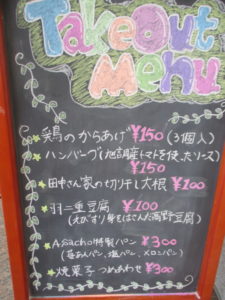 Takeout
Menu
鶏のからあげ ¥150 (3個入)
ハンバーグ(旭調産トマトを使ったソース)
¥150
田中さん家の切り干し大根 ¥100
羽二重豆腐 ¥100
(えびすり身をはさんだ高野豆腐)
Asacho特製パン ¥300
(苺あんパン、塩パン、メロンパン)
焼菓子つめあわせ ¥300